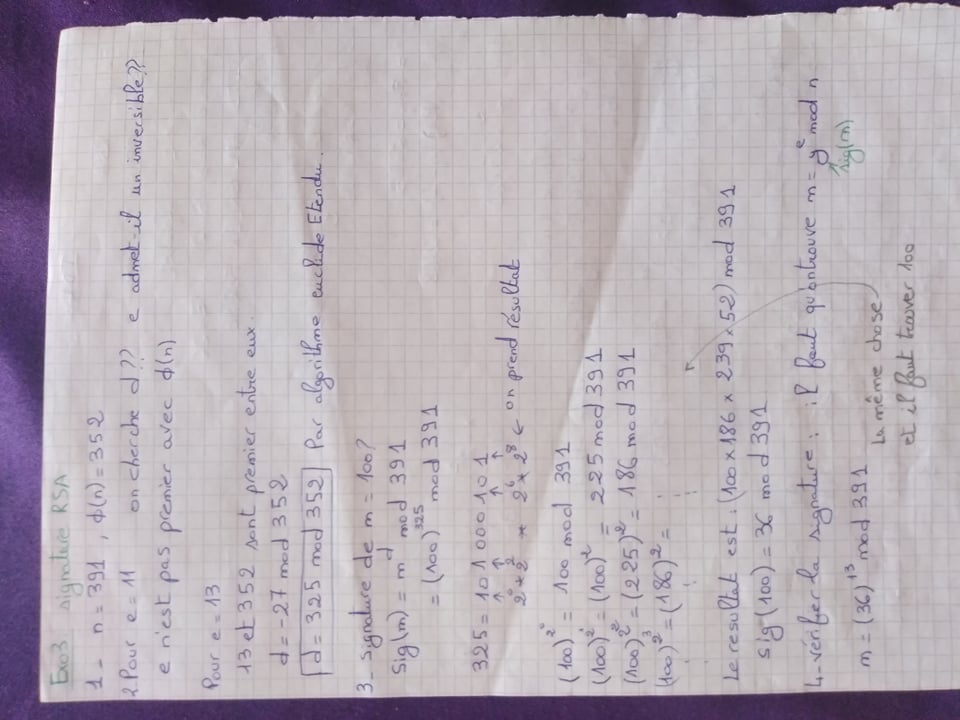 Exo3: signature RSA
1- n = 391 , ϕ(n) = 352
2. Pour e = 11 on cherche d?? e admet-il un inversible??
e n'est pas premier avec ϕ(n)
Pour e = 13
13 et 352 sont premier entre eux.
d = -27 mod 352
d = 325 mod 352 Par algorithme euclide Etendu.
3- signature de m = 100?
Sig(m) = m^d mod 391
= (100)^325 mod 391
325 = 101000101
↑ ↑ ↑ ↑
2^0 * 2^2 * 2^6 * 2^8 ← on prend résultat
(100)^2^0 = 100 mod 391
(100)^2^1 = (100)^2 = 225 mod 391
(100)^2^2 = (225)^2 = 186 mod 391
(100)^2^3 = (186)^2 =
Le resultat est : (100 × 186 × 239 × 52) mod 391
sig(100) = 36 mod 391
4- vérifier la signature : il faut qu'on trouve m = y^e mod n
sig(m)
m = (36)^13 mod 391
La même chose
et il faut trouver 100